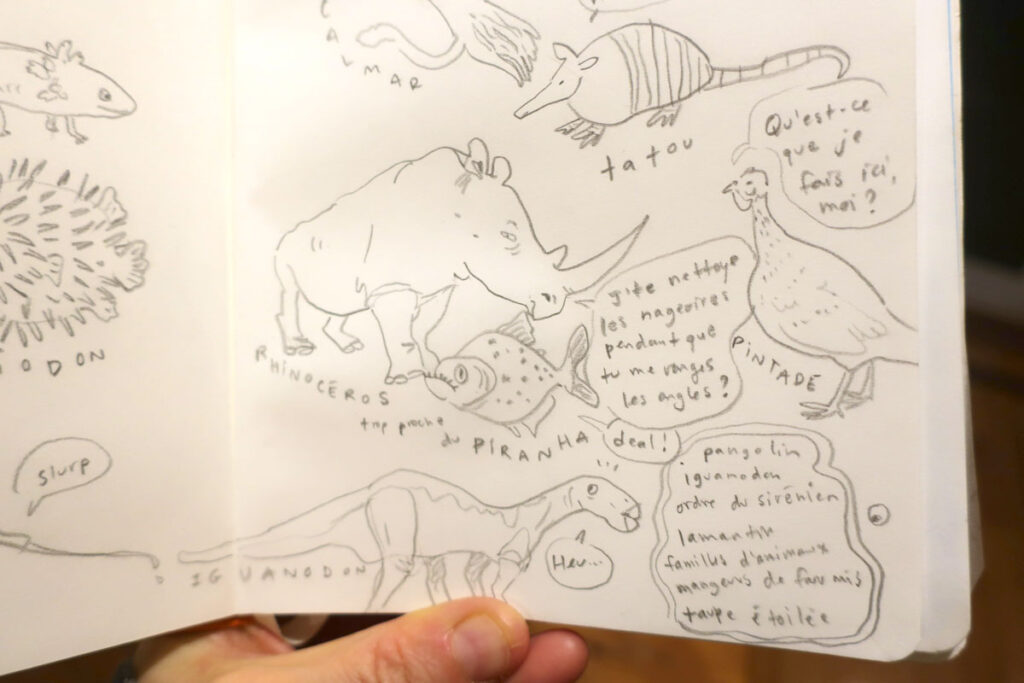 CALMAR
tatou
Qu'est-ce
que je
fais ici,
moi ?
J'te nettoye
les nageoires
pendant que
tu me ronges
les ongles ?
PINTADE
RHINOCÉROS
trop proche
du PIRANHA
deal !
ODON
slurp
IGUANODON
Heu...
pangolin
iguanodon
ordre du sirénien
lamantin
familles d'animaux
mangeurs de fourmis
taupe étoilée